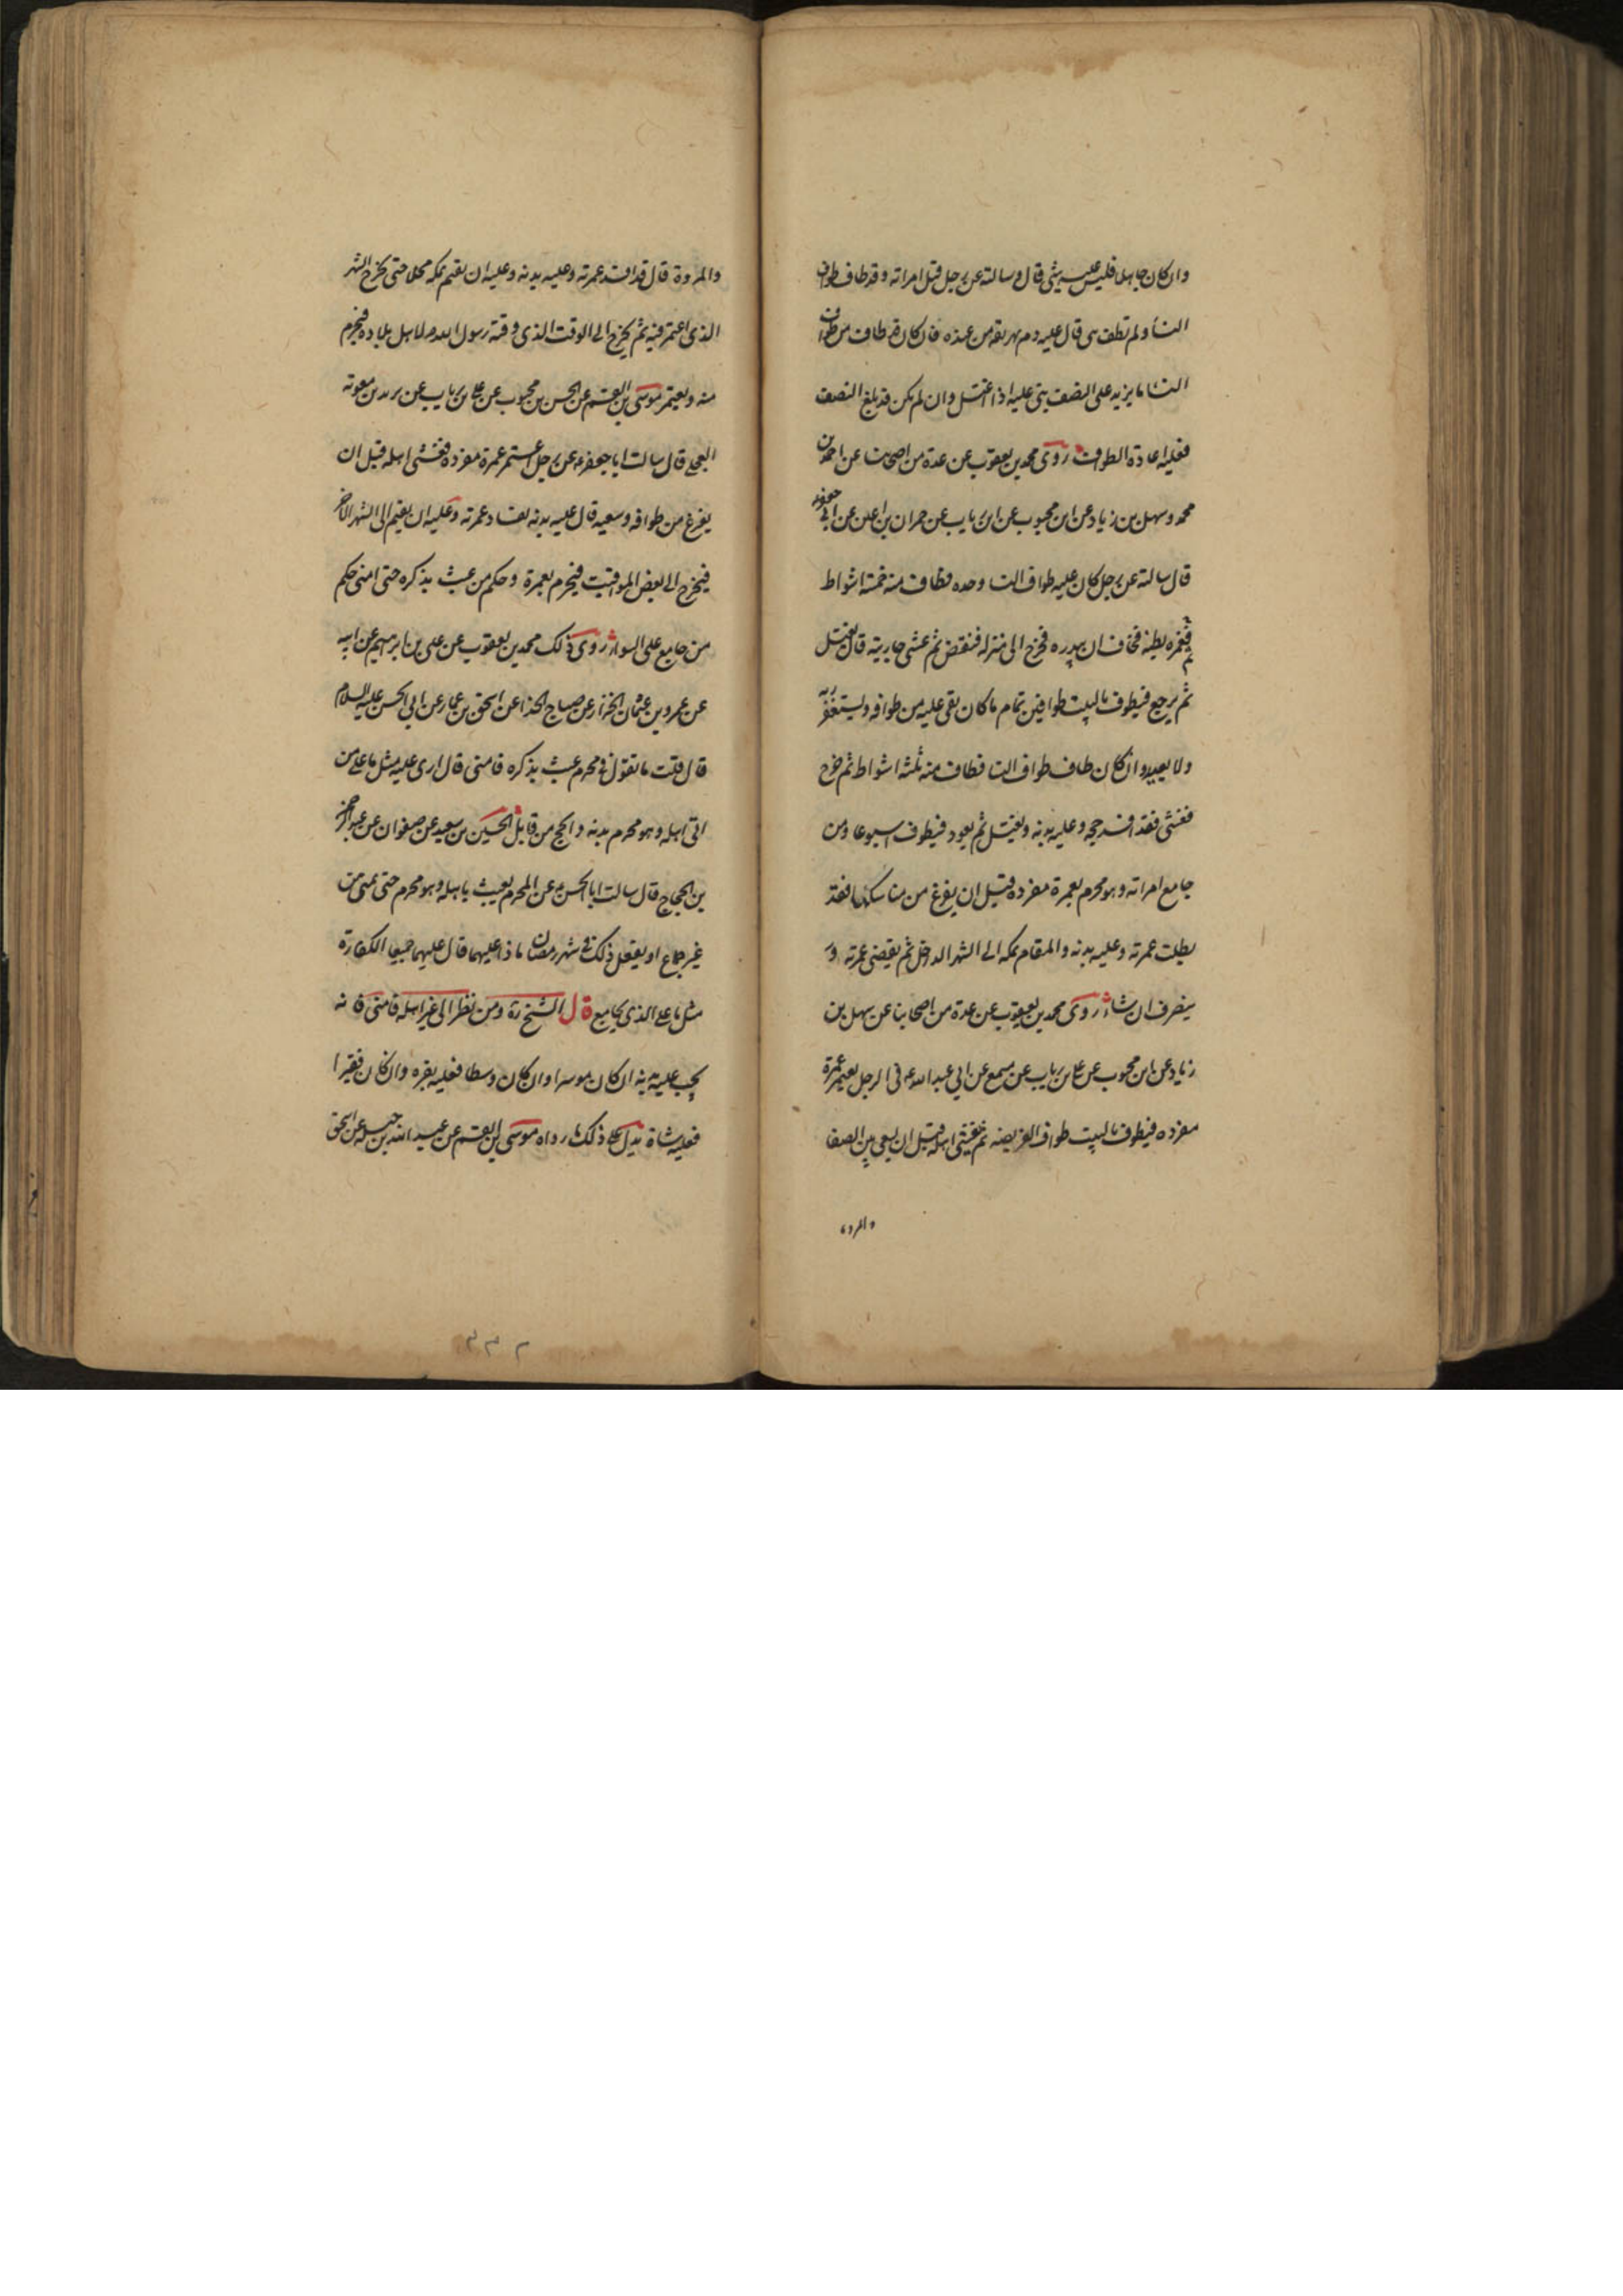 وان كان جاهلا فليس عليه شئ قال وسالته عن رجل قبل امراته وقد طاف طواف
النسا ولم تطف هى قال عليه دم يهريقه من عنده فان كان قد طاف من طواف
النسا ما يزيد على النصف بنى عليه اذا اغتسل وان لم يكن قد بلغ النصف
فعليه اعادة الطواف روى محمد بن يعقوب عن عدة من اصحابنا عن احمد بن
محمد وسهل بن زياد عن ابن محبوب عن ابن رياب عن حمران بن اعين عن ابى جعفر ع
قال سالته عن رجل كان عليه طواف النسا وحده فطاف منه خمسة اشواط
ثم غمزه بطنه فخاف ان يبدره فخرج الى منزله فنقض ثم غشى جاريته قال يغتسل
ثم يرجع فيطوف بالبيت طوافين تمام ما كان بقى عليه من طوافه وليستغفر ربه
ولا يعيد وان كان طاف طواف النسا فطاف منه ثلثه اشواط ثم خرج
فغشى فقد افسد حجه وعليه بدنه ويغتسل ثم يعود فيطوف اسبوعا ومن
جامع امراته وهو محرم بعمرة مفرده قبل ان يفرغ من مناسكها فقد
بطلت عمرته وعليه بدنه والمقام بمكه الى الشهر الداخل ثم يقضى عمرته و
ينصرف ان شاء روى محمد بن يعقوب عن عدة من اصحابنا عن سهل بن
زياد عن ابن محبوب عن على بن رياب عن مسمع عن ابى عبد الله ع فى الرجل يعتمر عمرة
مفرده فيطوف بالبيت طواف الفريضه ثم يغشى اهله قبل ان يسعى بين الصفا
والمروة
والمروة قال قد افسد عمرته وعليه بدنه وعليه ان يقيم بمكه محلا حتى يخرج الشهر
الذى اعتمر فيه ثم يخرج الى الوقت الذى وقته رسول الله ص لاهل بلاده فيحرم
منه ويعتمر موسى بن القسم عن الحسن بن محبوب عن على بن رياب عن بريد بن معويه
العجلى قال سالت ابا جعفر ع عن رجل اعتمر عمرة مفرده فغشى اهله قبل ان
يفرغ من طوافه وسعيه قال عليه بدنه لفساد عمرته وعليه ان يقيم الى الشهر الاخر
فيخرج الى بعض المواقيت فيحرم بعمرة وحكم من عبث بذكره حتى امنى حكم
من جامع على السواء روى ذلك محمد بن يعقوب عن على بن ابرهيم عن ابيه
عن عمرو بن عثمان الخزاز عن صباح الحذا عن اسحق بن عمار عن ابى الحسن عليه السلام
قال قلت ما تقول فى محرم عبث بذكره فامنى قال ارى عليه مثل ما على من
اتى اهله وهو محرم بدنه والحج من قابل الحسين بن سعيد عن صفوان عن عبد الرحمن
بن الحجاج قال سالت ابا الحسن ع عن المحرم يعبث باهله وهو محرم حتى يمنى من
غير جماع او يفعل ذلك فى شهر رمضان ماذا عليهما قال عليهما جميعا الكفارة
مثل ما على الذى يجامع قال الشيخ ره ومن نظر الى غير اهله فامنى فانه
يجب عليه بدنه ان كان موسرا وان كان وسطا فعليه بقره وان كان فقيرا
فعليه شاة يدل على ذلك ما رواه موسى بن القسم عن عبد الله بن جبله عن اسحق
٢٣٢